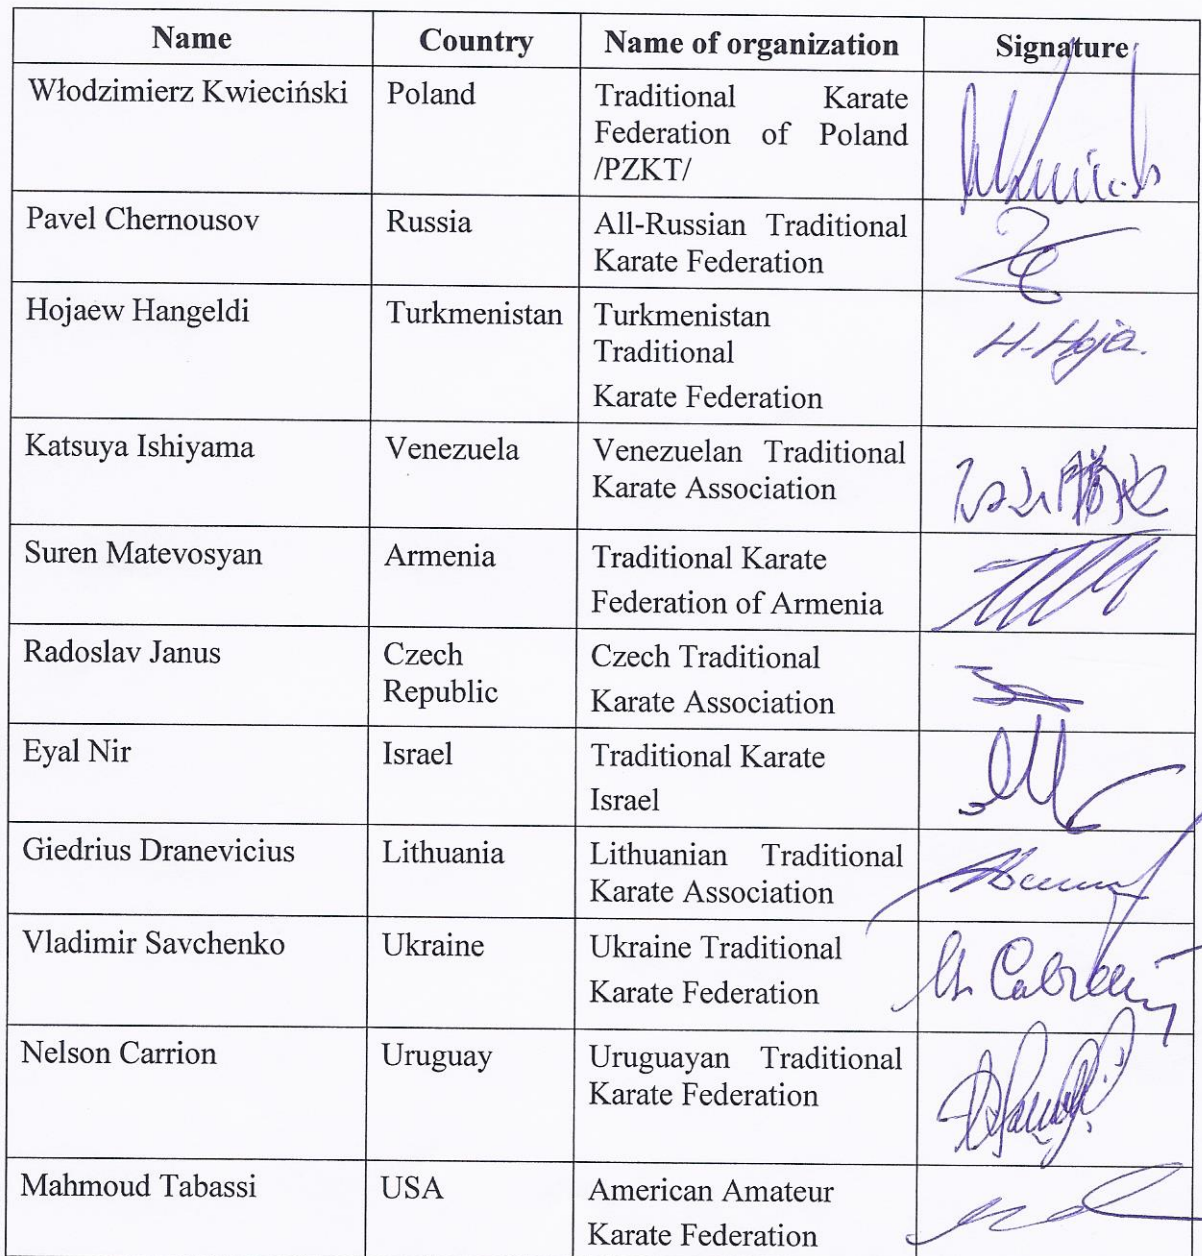 Name Country Name of organization Signature
Włodzimierz Kwieciński Poland Traditional Karate
Federation of Poland
/PZKT/
Pavel Chernousov Russia All-Russian Traditional
Karate Federation
Hojaew Hangeldi Turkmenistan Turkmenistan H-Hoja.
Traditional
Karate Federation
Katsuya Ishiyama Venezuela Venezuelan Traditional 石山勝也
Karate Association
Suren Matevosyan Armenia Traditional Karate
Federation of Armenia
Radoslav Janus Czech Czech Traditional
Republic Karate Association
Eyal Nir Israel Traditional Karate
Israel
Giedrius Dranevicius Lithuania Lithuanian Traditional
Karate Association
Vladimir Savchenko Ukraine Ukraine Traditional
Karate Federation
Nelson Carrion Uruguay Uruguayan Traditional
Karate Federation
Mahmoud Tabassi USA American Amateur
Karate Federation